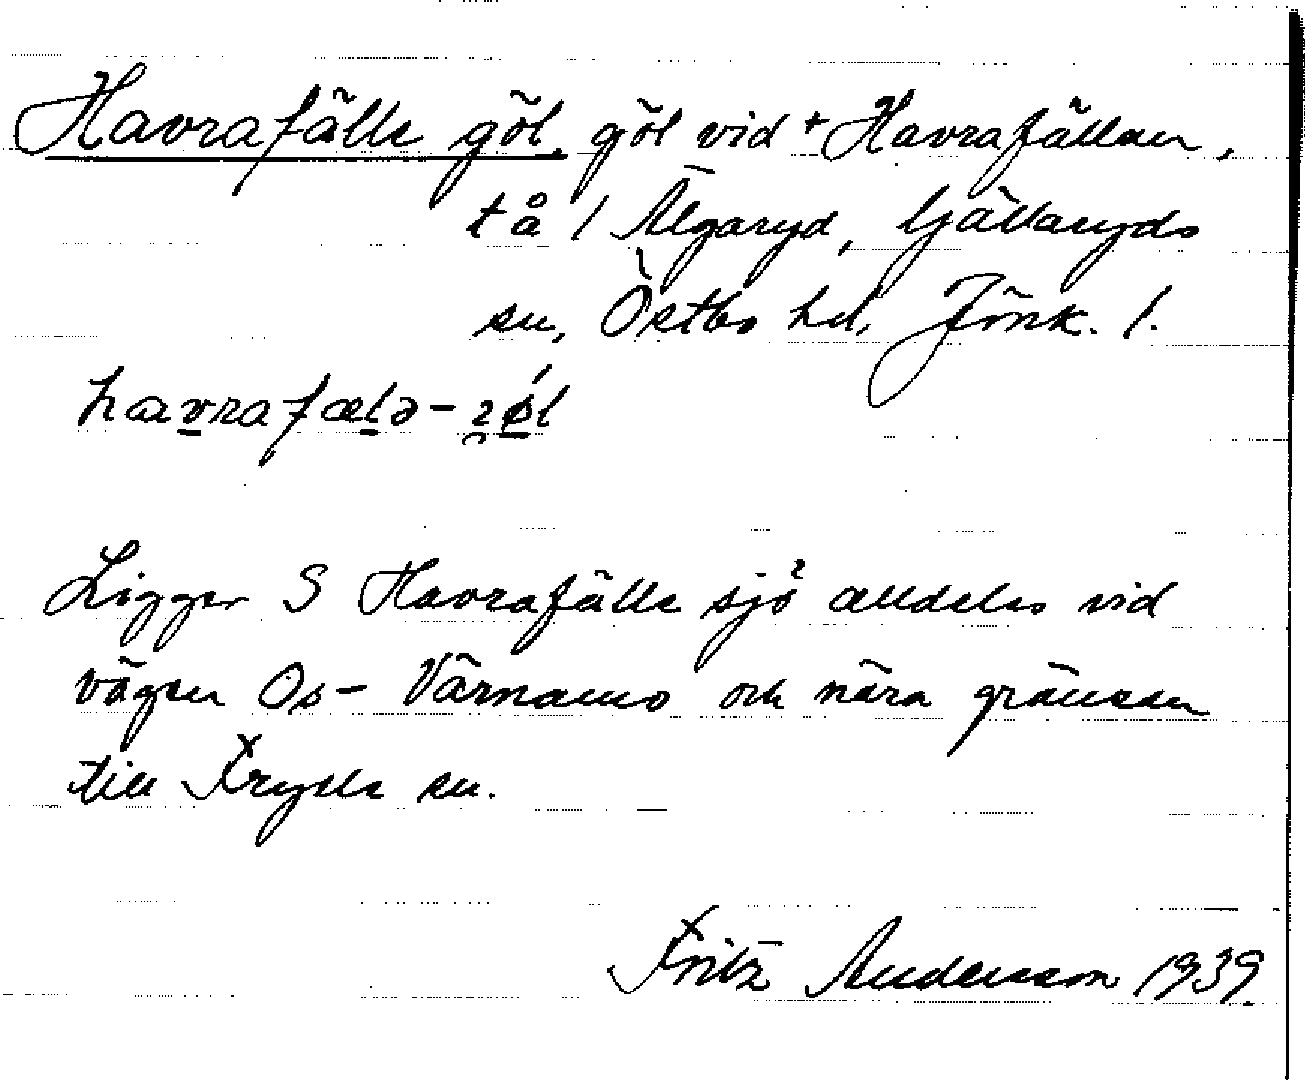 Havrafälle göl, göl vid + Havrafällan,
t å 1 Älgaryd, Gällaryds
sn, Östbo hd, Jönk. l.
havrafælə-
Ligger S Havrafälle sjö alldeles vid
vägen Os - Värnamo och nära gränsen
till Fryele sn.
Fritz Andersson 1939